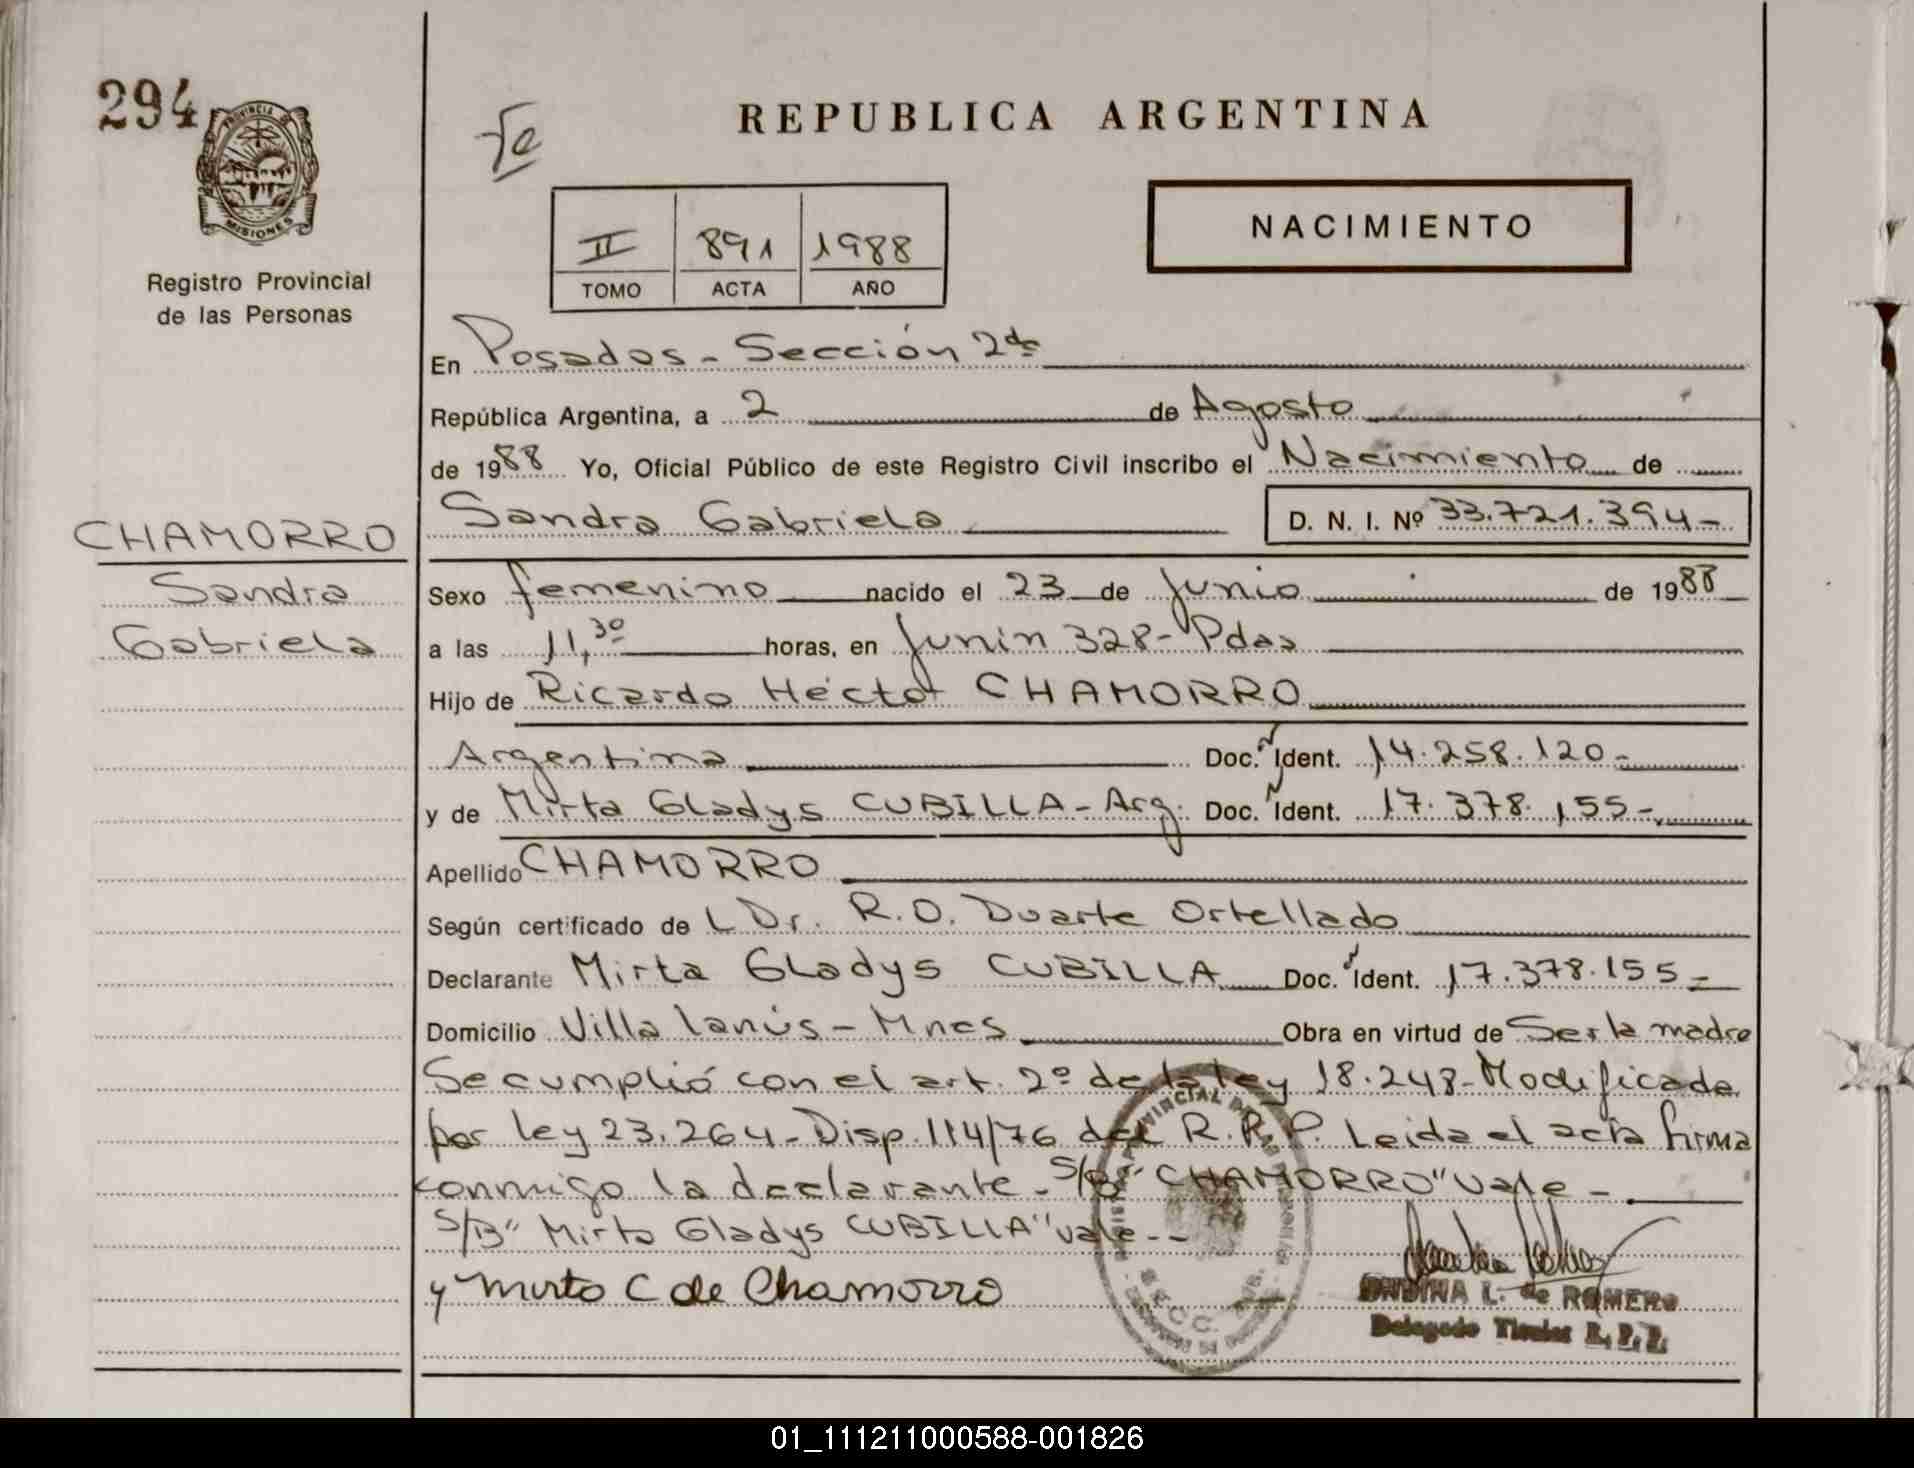 294
PROVINCIA DE
MISIONES
Registro Provincial
de las Personas
CHAMORRO
Sandra
Gabriela
Fe
REPUBLICA ARGENTINA
II 891 1988
TOMO ACTA AÑO
NACIMIENTO
En Posadas - Sección 2da
República Argentina, a 2 de Agosto
de 1988 Yo, Oficial Público de este Registro Civil inscribo el Nacimiento de
Sandra Gabriela D. N. I. Nº 33.721.394-
Sexo femenino nacido el 23 de Junio de 1988
a las 11,30 horas, en Junín 328- Pdas
Hijo de Ricardo Héctor CHAMORRO
Argentina Doc. Ident. 14.258.120-
y de Mirta Gladys CUBILLA - Arg. Doc. Ident. 17.378.155-
Apellido CHAMORRO
Según certificado de L Dr. R.O. Duarte Ortellado
Declarante Mirta Gladys CUBILLA Doc. Ident. 17.378.155-
Domicilio Villa Lanús - Mnes Obra en virtud de Ser la madre
Se cumplió con el art. 2º de la ley 18.248- Modificada
por ley 23.264- Disp. 114/76 del R.R.P. Leida el acta firma
conmigo la declarante - S/B "CHAMORRO" vale -
S/B "Mirta Gladys CUBILLA" vale --
y Mirta C de Chamorro
L. de ROMERO
Delegado Titular R. P. P.
SECC.
01_111211000588-001826